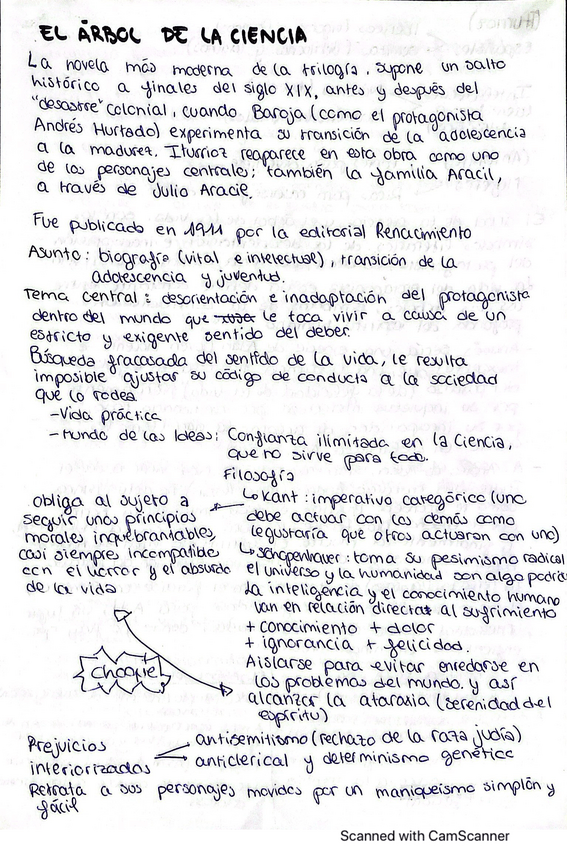 EL ÁRBOL DE LA CIENCIA
La novela más moderna de la trilogía, supone un salto
histórico a finales del siglo XIX, antes y después del
"desastre" colonial, cuando Baroja (como el protagonista
Andrés Hurtado) experimenta su transición de la adolescencia
a la madurez. Iturrioz reaparece en esta obra como uno
de los personajes centrales; también la familia Aracil,
a través de Julio Aracil.
Fue publicado en 1911 por la editorial Renacimiento
Asunto: biografía (vital e intelectual), transición de la
adolescencia y juventud.
Tema central: desorientación e inadaptación del protagonista
dentro del mundo que le toca vivir a causa de un
estricto y exigente sentido del deber.
Búsqueda fracasada del sentido de la vida, le resulta
imposible ajustar su código de conducta a la sociedad
que lo rodea
-Vida práctica
-Mundo de las Ideas: Confianza ilimitada en la Ciencia,
que no sirve para todo.
Filosofía
↳ Kant: imperativo categórico (uno
debe actuar con los demás como
le gustaría que otros actuaran con uno)
obliga al sujeto a
seguir unos principios
morales inquebrantables,
casi siempre incompatible
con el horror y el absurdo
de la vida
↳ Schopenhauer: toma su pesimismo radical
el universo y la humanidad son algo
La inteligencia y el conocimiento humano
van en relación directa al sufrimiento
+ conocimiento + dolor
+ ignorancia + felicidad.
Aislarse para evitar enredarse en
los problemas del mundo y así
alcanzar la ataraxia (serenidad del
espíritu)
Choque
Prejuicios
interiorizados
antisemitismo (rechazo de la raza judía)
anticlerical y determinismo genético
Retrata a sus personajes movidos por un maniqueísmo simplón y
fácil
Scanned with CamScanner